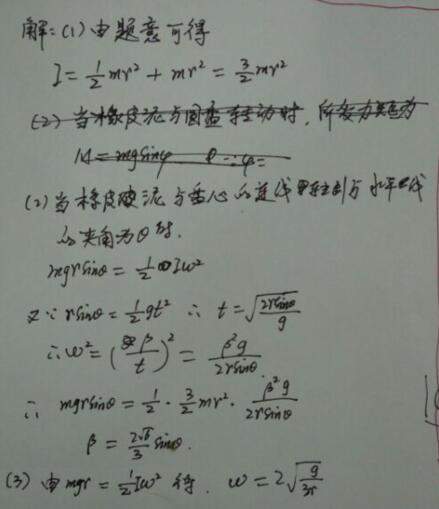 解:(1)由题意可得
I=½mr²+mr²=3/2mr²
(2)当橡皮泥与圆盘转动时,所受力矩为
M=mgsinφ
(2)当橡皮泥与盘心的连线转到与水平线
的夹角为θ时.
mgrsinθ=½Iω²
又∵rsinθ=½gt² ∴t=√(2rsinθ/g)
∴ω²=(β/t)²=β²g/2rsinθ
∴ mgrsinθ=½·3/2mr²·β²g/2rsinθ
β=2√6/3 sinθ.
(3)由mgr=½Iω²得. ω=2√(g/3r)